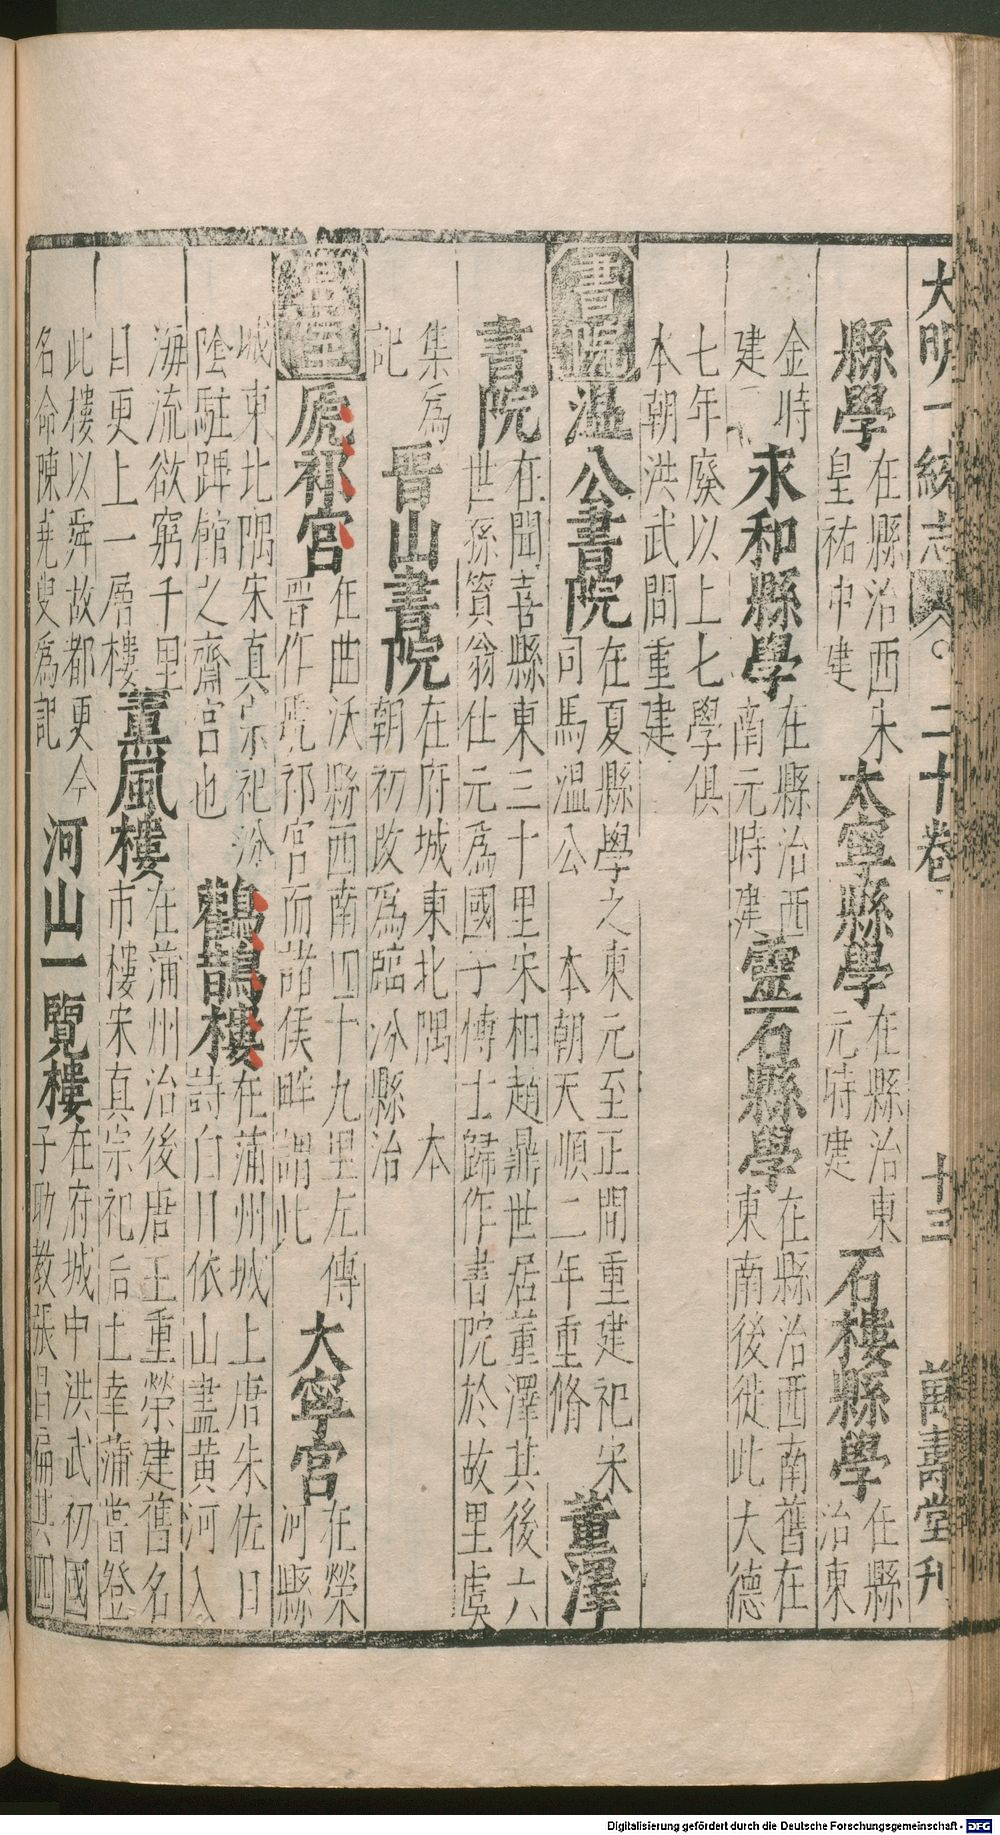 大明一統志 二十卷 十三 萬壽堂刊
縣學 在縣治西宋
皇祐中建 大寧縣學 在縣治東
元時建 石樓縣學 在縣
治東
金時
建 永和縣學 在縣治西
南元時建 靈石縣學 在縣治西南舊在
東南後徙此大德
七年廢以上七學俱
本朝洪武間重建
書院 溫公書院 在夏縣學之東元至正間重建祀宋
司馬溫公 本朝天順二年重脩 董澤
書院 在聞喜縣東三十里宋相趙鼎世居董澤其後六
世孫篔翁仕元為國子博士歸作書院於故里虞
集為
記 晉山書院 在府城東北隅 本
朝初改為臨汾縣治
宮室 虒祁宮 在曲沃縣西南四十九里左傳
晉作虒祁宮而諸侯畔謂此 大寧宮 在榮
河縣
城東北隅宋真宗祀汾
陰駐蹕館之齋宮也 鸛鵲樓 在蒲州城上唐朱佐日
詩白日依山盡黃河入
海流欲窮千里
目更上一層樓 薰風樓 在蒲州治後唐王重榮建舊名
市樓宋真宗祀后土幸蒲嘗登
此樓以舜故都更今
名命陳堯叟為記 河山一覽樓 在府城中洪武初國
子助教張昌扁其四
Digitalisierung gefördert durch die Deutsche Forschungsgemeinschaft - DFG